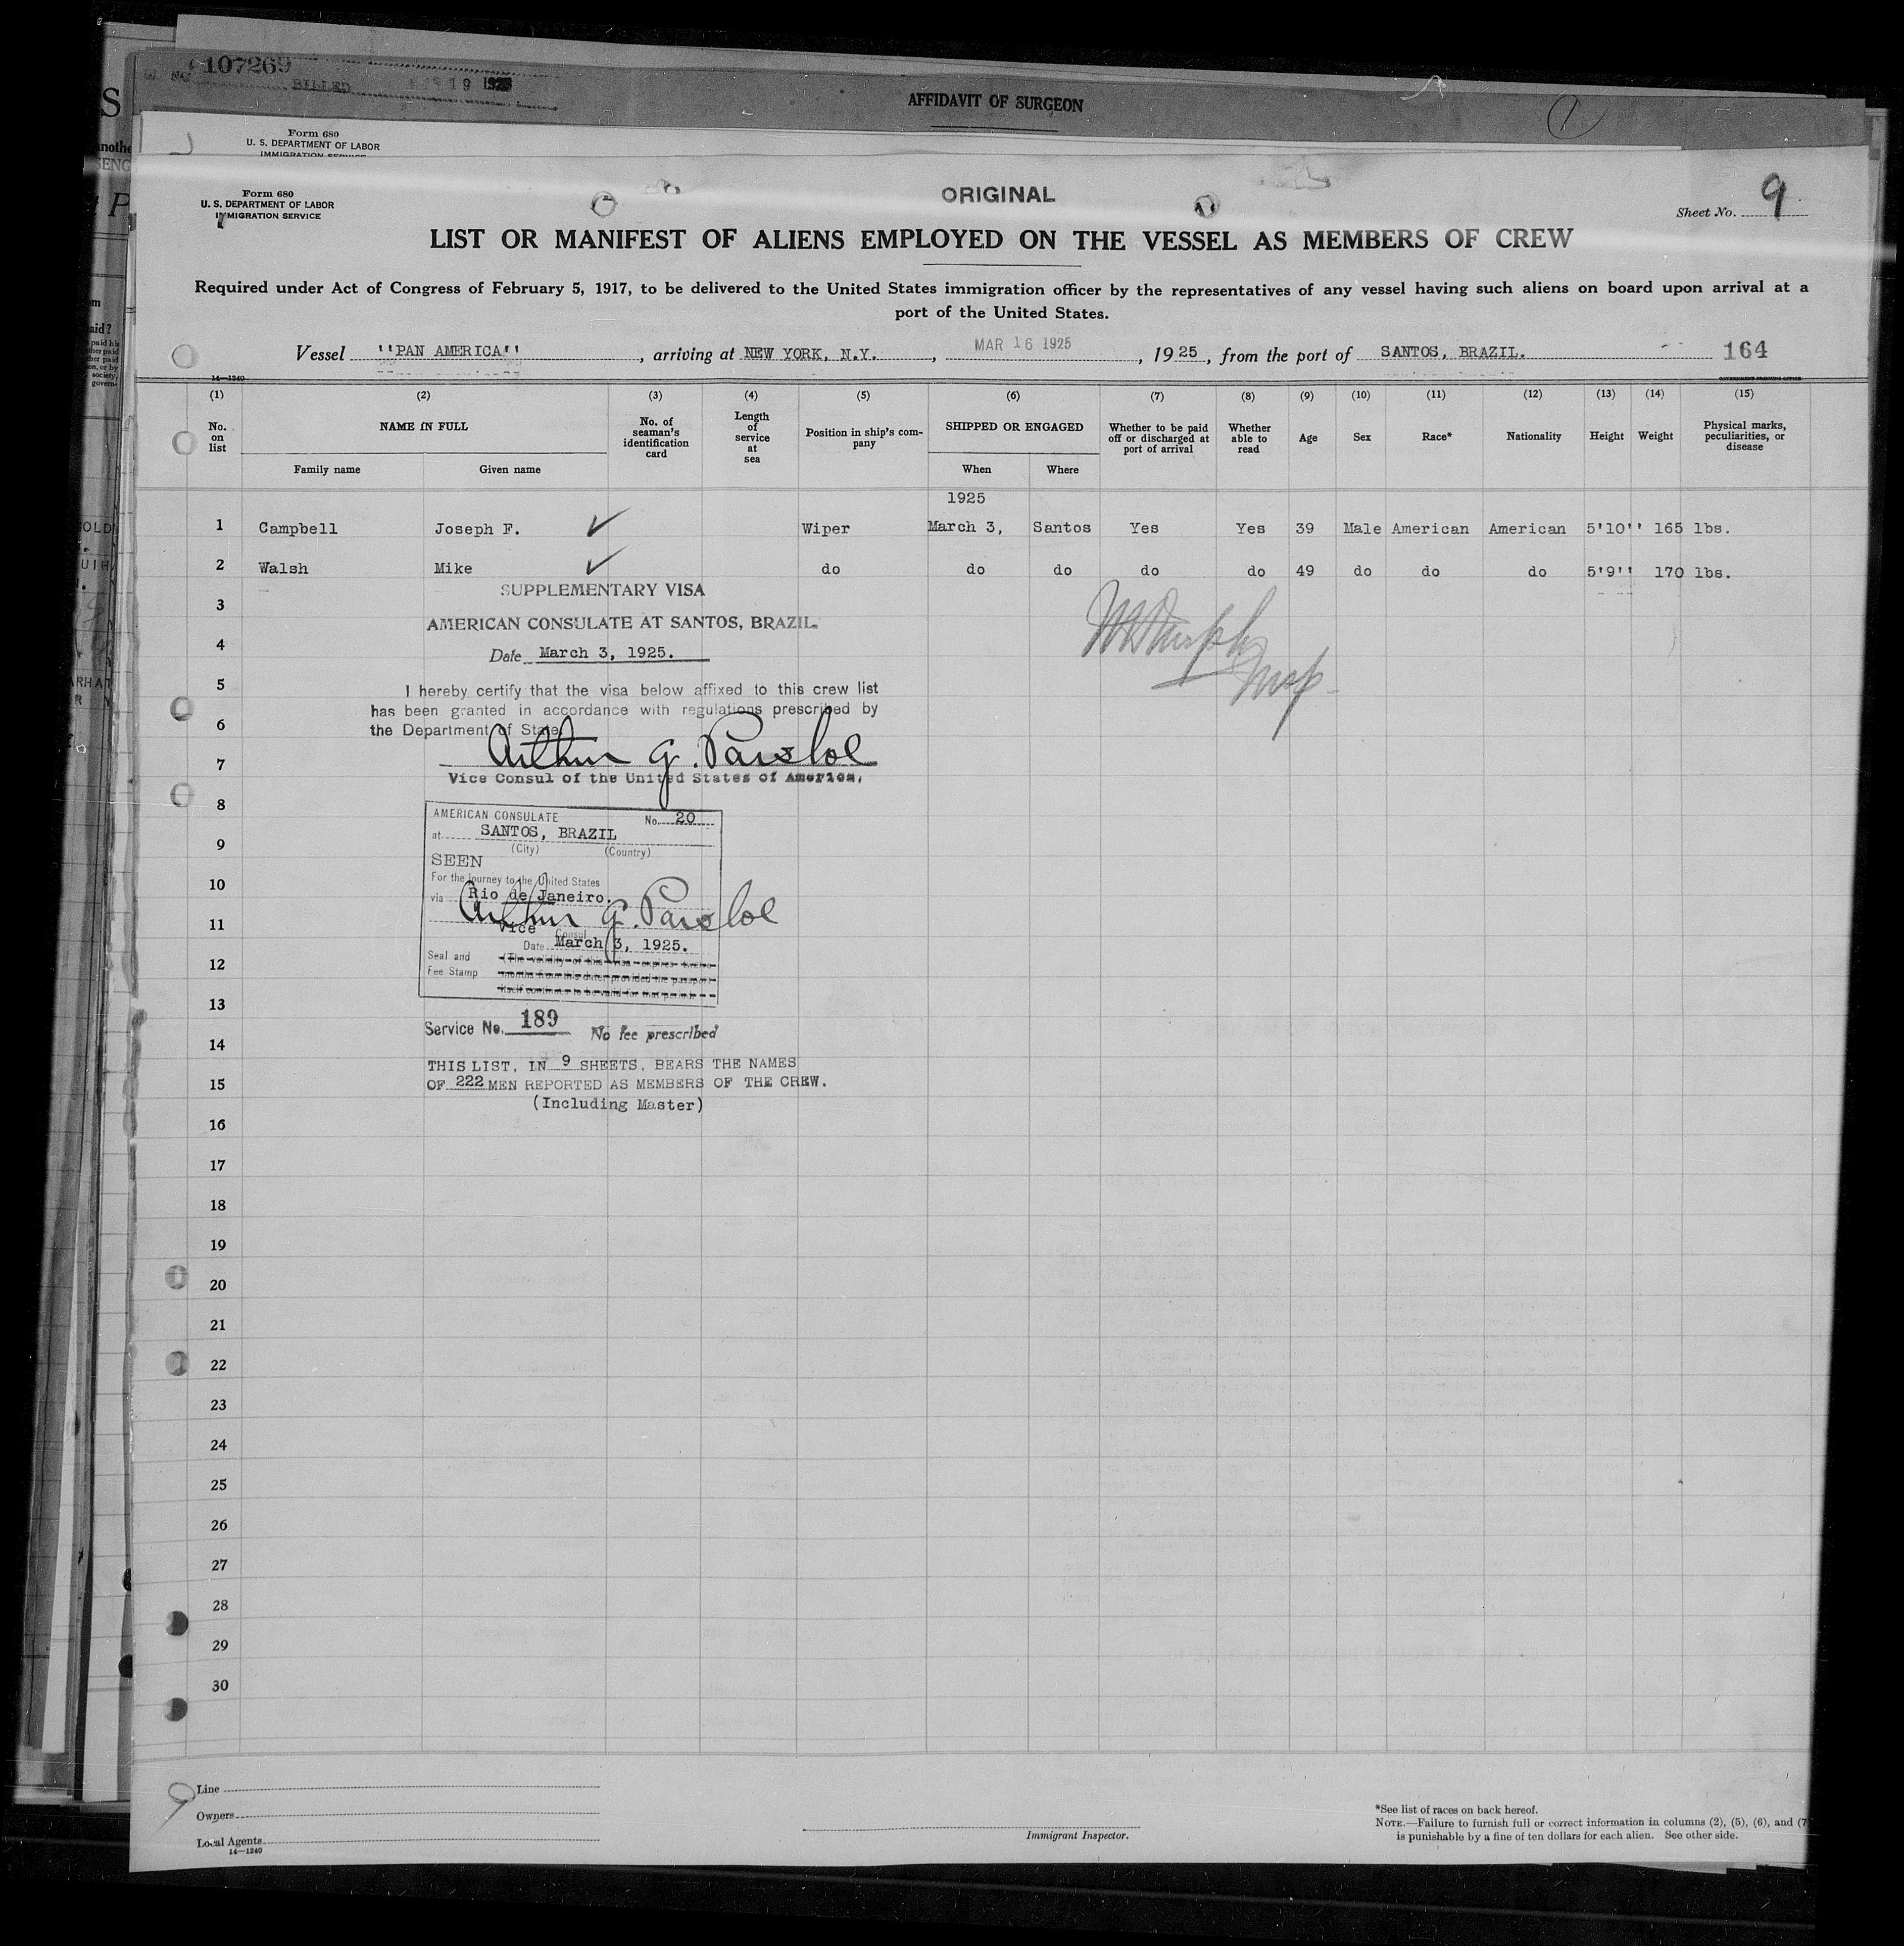 107269
BILLED 19 1925
AFFIDAVIT OF SURGEON
1
Form 680
U. S. DEPARTMENT OF LABOR
IMMIGRATION SERVICE
Form 680
U. S. DEPARTMENT OF LABOR
IMMIGRATION SERVICE
ORIGINAL
Sheet No. 9
LIST OR MANIFEST OF ALIENS EMPLOYED ON THE VESSEL AS MEMBERS OF CREW
Required under Act of Congress of February 5, 1917, to be delivered to the United States immigration officer by the representatives of any vessel having such aliens on board upon arrival at a
port of the United States.
Vessel ''PAN AMERICA'', arriving at NEW YORK, N.Y., MAR 16 1925, 1925, from the port of SANTOS, BRAZIL. 164
14—1240
(1) (2) (3) (4) (5) (6) (7) (8) (9) (10) (11) (12) (13) (14) (15)
No. on list NAME IN FULL No. of seaman's identification card Length of service at sea Position in ship's company SHIPPED OR ENGAGED Whether to be paid off or discharged at port of arrival Whether able to read Age Sex Race* Nationality Height Weight Physical marks, peculiarities, or disease
Family name Given name When Where
1925
1 Campbell Joseph F. ✓ Wiper March 3, Santos Yes Yes 39 Male American American 5'10'' 165 lbs.
2 Walsh Mike ✓ do do do do do 49 do do do 5'9'' 170 lbs.
SUPPLEMENTARY VISA
3
AMERICAN CONSULATE AT SANTOS, BRAZIL.
4
Date March 3, 1925.
5
I hereby certify that the visa below affixed to this crew list
has been granted in accordance with regulations prescribed by
6
the Department of State.
Arthur G. Parsloe
7
Vice Consul of the United States of America.
8
AMERICAN CONSULATE No. 20
at SANTOS, BRAZIL
9
(City) (Country)
SEEN
For the journey to the United States
10
via Rio de Janeiro.
Arthur G. Parsloe
11
Vice Consul
Date March 3, 1925.
12
Seal and (The validity of this visa expires twelve
Fee Stamp months from this date, provided the passport
itself continues to be valid for that period
13
Service No. 189 No fee prescribed
14
THIS LIST, IN 9 SHEETS, BEARS THE NAMES
15
OF 222 MEN REPORTED AS MEMBERS OF THE CREW.
(Including Master)
16
17
18
19
20
21
22
23
24
25
26
27
28
29
30
9
Line
Owners
Local Agents
14—1240
Immigrant Inspector.
*See list of races on back hereof.
NOTE.—Failure to furnish full or correct information in columns (2), (5), (6), and (7)
is punishable by a fine of ten dollars for each alien. See other side.